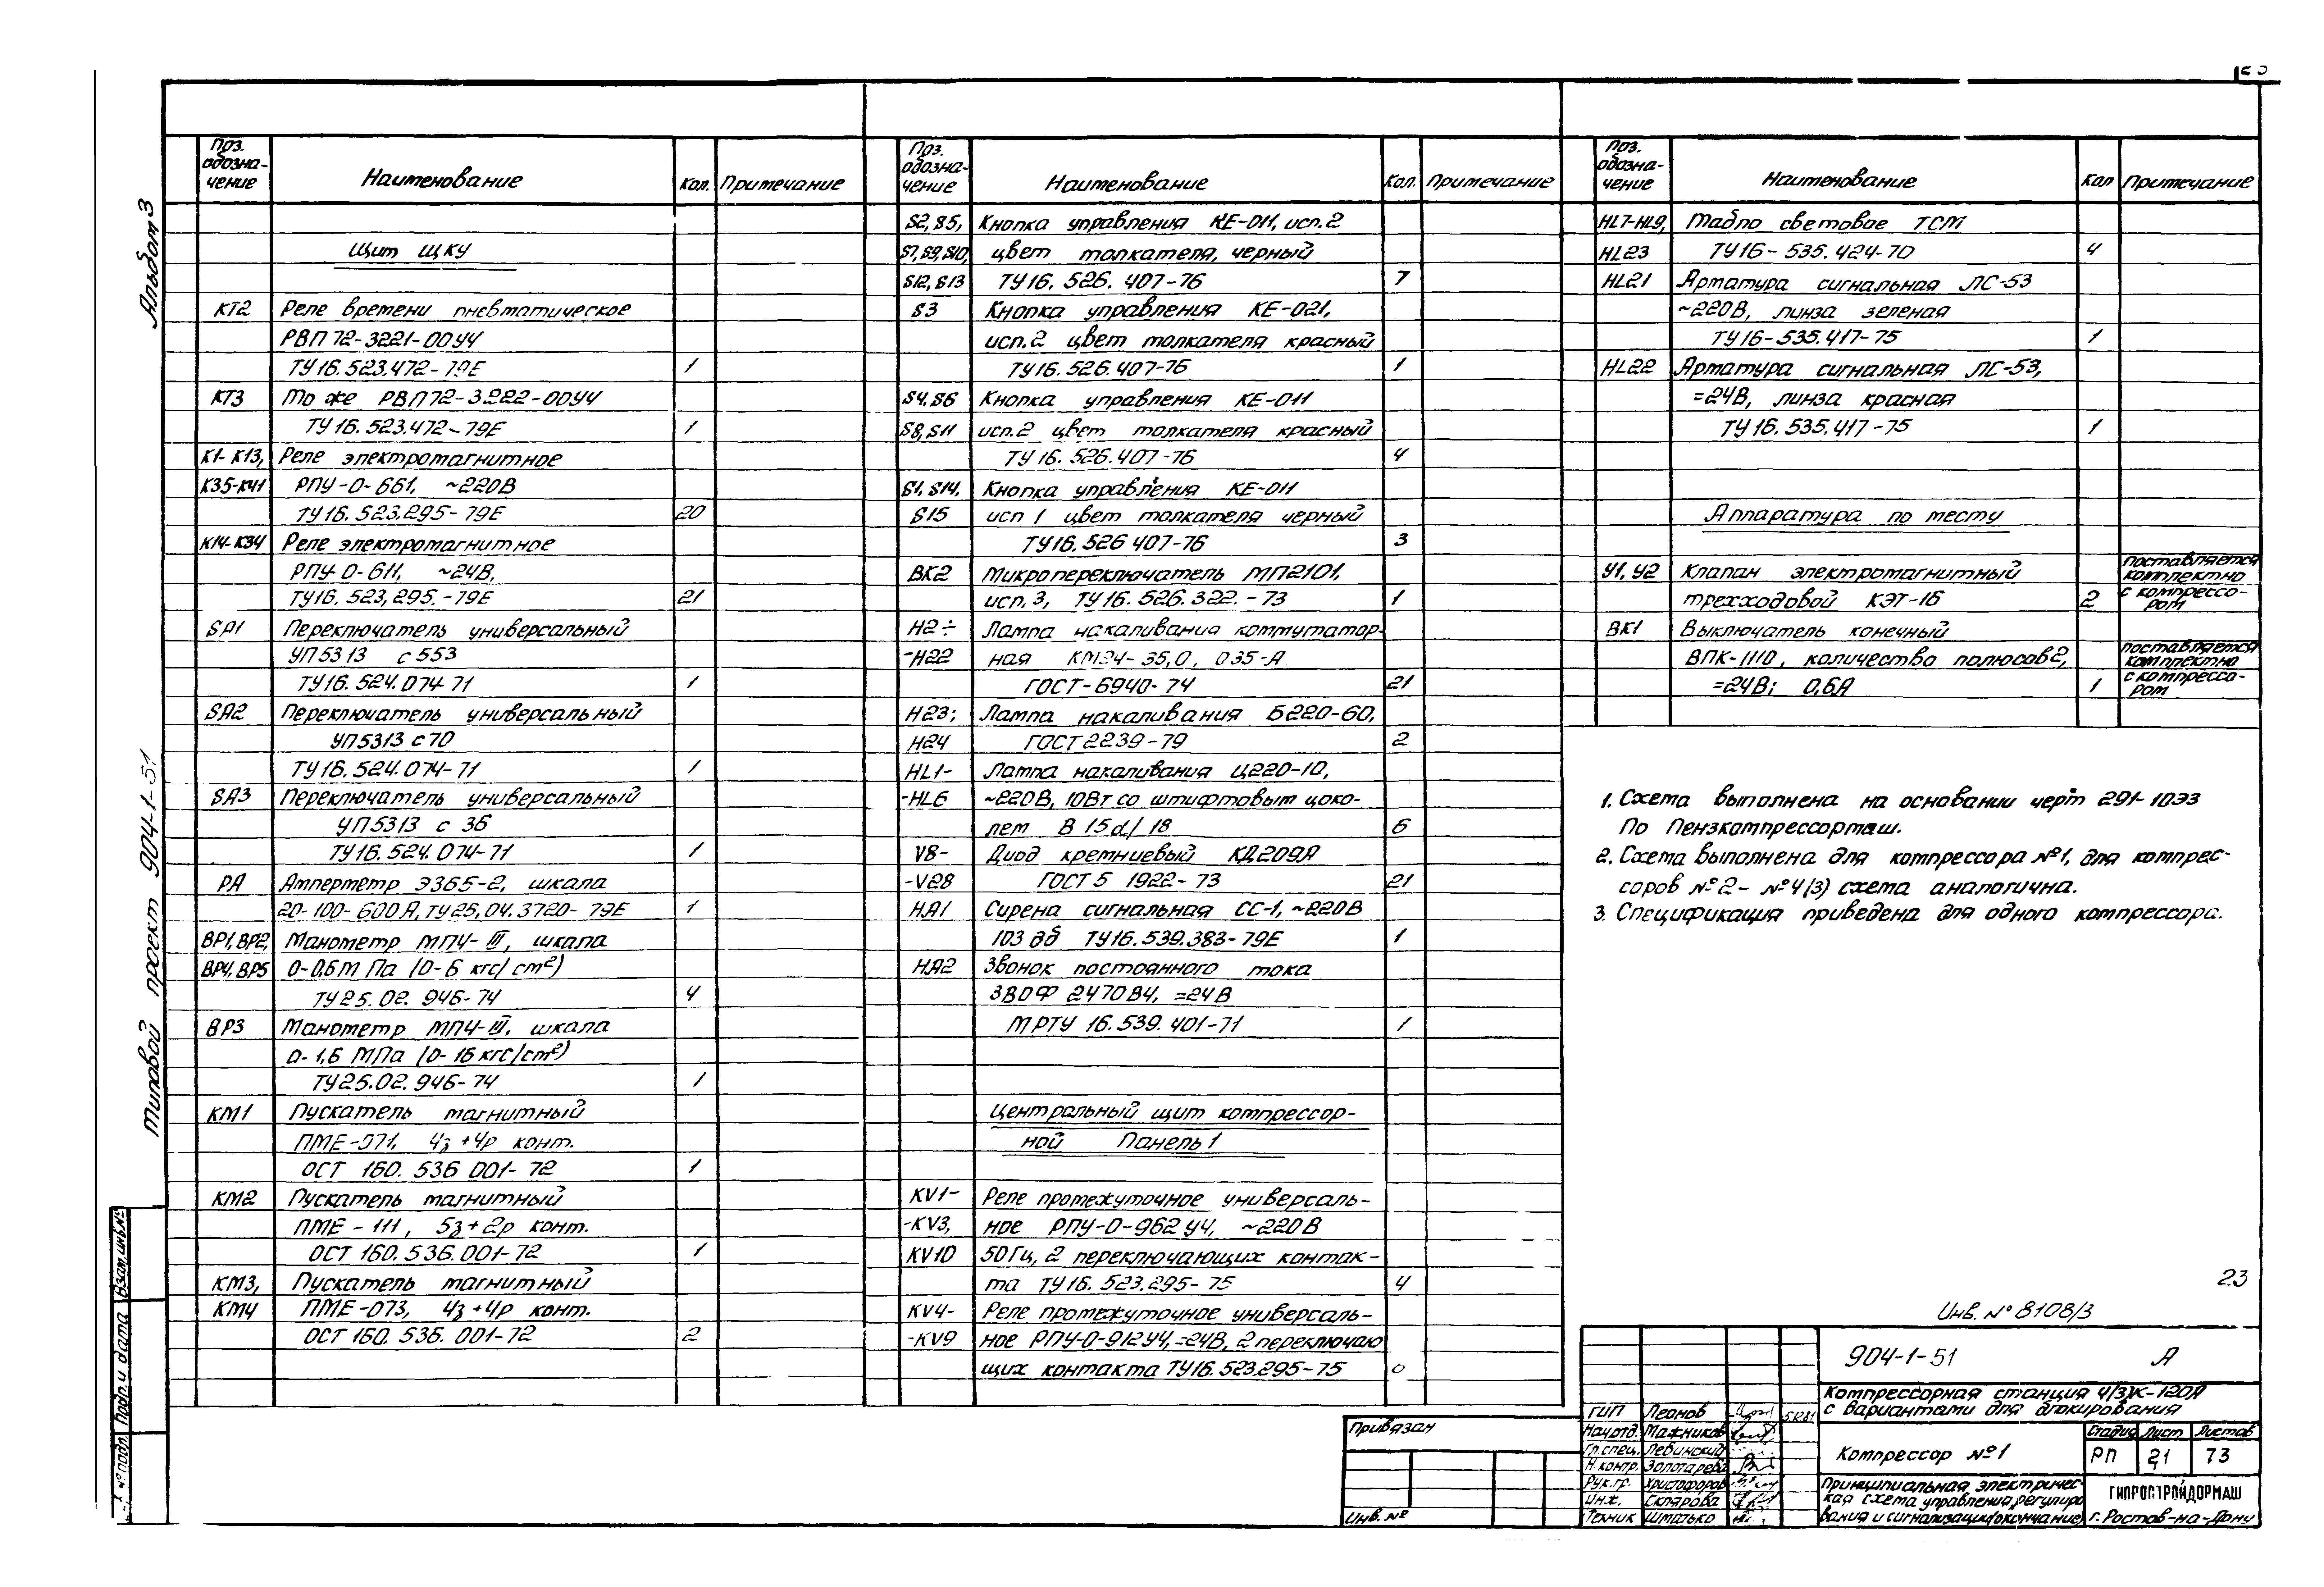 Альбом 3
Типовой проект 904-1-51
Взам. инв. №
Подп. и дата
№ подл.
Поз. обозначение Наименование Кол. Примечание
Щит ЩКУ
КТ2 Реле времени пневматическое
РВП 72-3221-00У4
ТУ16.523.472-79Е 1
КТ3 То же РВП72-3222-00У4
ТУ16.523.472-79Е 1
К1-К13, Реле электромагнитное
К35-К41 РПУ-0-661, ~220В
ТУ16.523.295-79Е 20
К14-К34 Реле электромагнитное
РПУ-0-611, ~24В,
ТУ16.523,295.-79Е 21
SA1 Переключатель универсальный
УП5313 с553
ТУ16.524.074-71 1
SA2 Переключатель универсальный
УП5313 с70
ТУ16.524.074-71 1
SA3 Переключатель универсальный
УП5313 с 36
ТУ16.524.074-71 1
РА Амперметр Э365-2, шкала
20-100-600А, ТУ25,04.3720-79Е 1
ВР1, ВР2, Манометр МП4-III, шкала
ВР4, ВР5 0-0,6 М Па (0-6 кгс/см²)
ТУ25.02.946-74 4
ВР3 Манометр МП4-III, шкала
0-1,6 МПа (0-16 кгс/см²)
ТУ25.02.946-74 1
КМ1 Пускатель магнитный
ПМЕ-071, 4з+4р конт.
ОСТ 160.536 001-72 1
КМ2 Пускатель магнитный
ПМЕ-111, 5з+2р конт.
ОСТ 160.536.001-72 1
КМ3, Пускатель магнитный
КМ4 ПМЕ-073, 4з+4р конт.
ОСТ 160.536.001-72 2
Поз. обозначение Наименование Кол. Примечание
S2, S5, Кнопка управления КЕ-011, исп.2
S7, S9, S10, цвет толкателя, черный
S12, S13 ТУ16.526.407-76 7
S3 Кнопка управления КЕ-021,
исп.2 цвет толкателя красный
ТУ16.526.407-76 1
S4, S6 Кнопка управления КЕ-011
S8, S11 исп.2 цвет толкателя красный
ТУ16.526.407-76 4
S1, S14, Кнопка управления КЕ-011
S15 исп 1 цвет толкателя черный
ТУ16.526 407-76 3
ВК2 Микропереключатель МП2101,
исп.3, ТУ16.526.322.-73 1
Н2÷ Лампа накаливания коммутатор-
-Н22 ная КМ24-35,0, 035-А
ГОСТ-6940-74 21
Н23; Лампа накаливания Б220-60,
Н24 ГОСТ 2239-79 2
HL1- Лампа накаливания Ц220-10,
-HL6 ~220В, 10Вт со штифтовым цоко-
лем В 15d/18 6
V8- Диод кремниевый КД209А
-V28 ГОСТ 5 1922-73 21
НА1 Сирена сигнальная СС-1, ~220В
103 дб ТУ16.539.383-79Е 1
НА2 Звонок постоянного тока
ЗВОФ 2470В4, =24В
МРТУ 16.539.401-71 1
Центральный щит компрессор-
ной Панель 1
KV1- Реле промежуточное универсаль-
-KV3, ное РПУ-0-962 У4, ~220В
KV10 50Гц, 2 переключающих контак-
та ТУ16.523.295-75 4
KV4- Реле промежуточное универсаль-
-KV9 ное РПУ-0-912У4, =24В, 2 переключаю
щих контакта ТУ16.523.295-75
Поз. обозначение Наименование Кол Примечание
HL7-HL9, Табло световое ТСМ
HL23 ТУ16-535.424-70 4
HL21 Арматура сигнальная ЛС-53
~220В, линза зеленая
ТУ16-535.417-75 1
HL22 Арматура сигнальная ЛС-53,
=24В, линза красная
ТУ16.535.417-75 1
Аппаратура по месту
У1, У2 Клапан электромагнитный поставляется комплектно
трехходовой КЭТ-16 2 с компрессором
ВК1 Выключатель конечный
ВПК-1110, количество полюсов 2, поставляется комплектно
=24В; 0,6А 1 с компрессором
1. Схема выполнена на основании черт 291-10ЭЗ
По Пензкомпрессормаш.
2. Схема выполнена для компрессора №1, для компрес-
соров №2-№4(3) схема аналогична.
3. Спецификация приведена для одного компрессора.
23
Инв. № 8108/3
904-1-51 А
Компрессорная станция 4(3)К-120А
с вариантами для блокирования
Компрессор №1
Стадия Лист Листов
РП 21 73
Принципиальная электричес-
кая схема управления, регулиро
вания и сигнализации (окончание)
ГИПРОСТРОЙДОРМАШ
г. Ростов-на-Дону
ГИП Леонов
Нач.отд. Мажников
Гл.спец. Левинский
Н.контр. Золотарева
Рук.гр. Христофоров
Инж. Склярова
Техник Шматько
Привязан
Инв. №